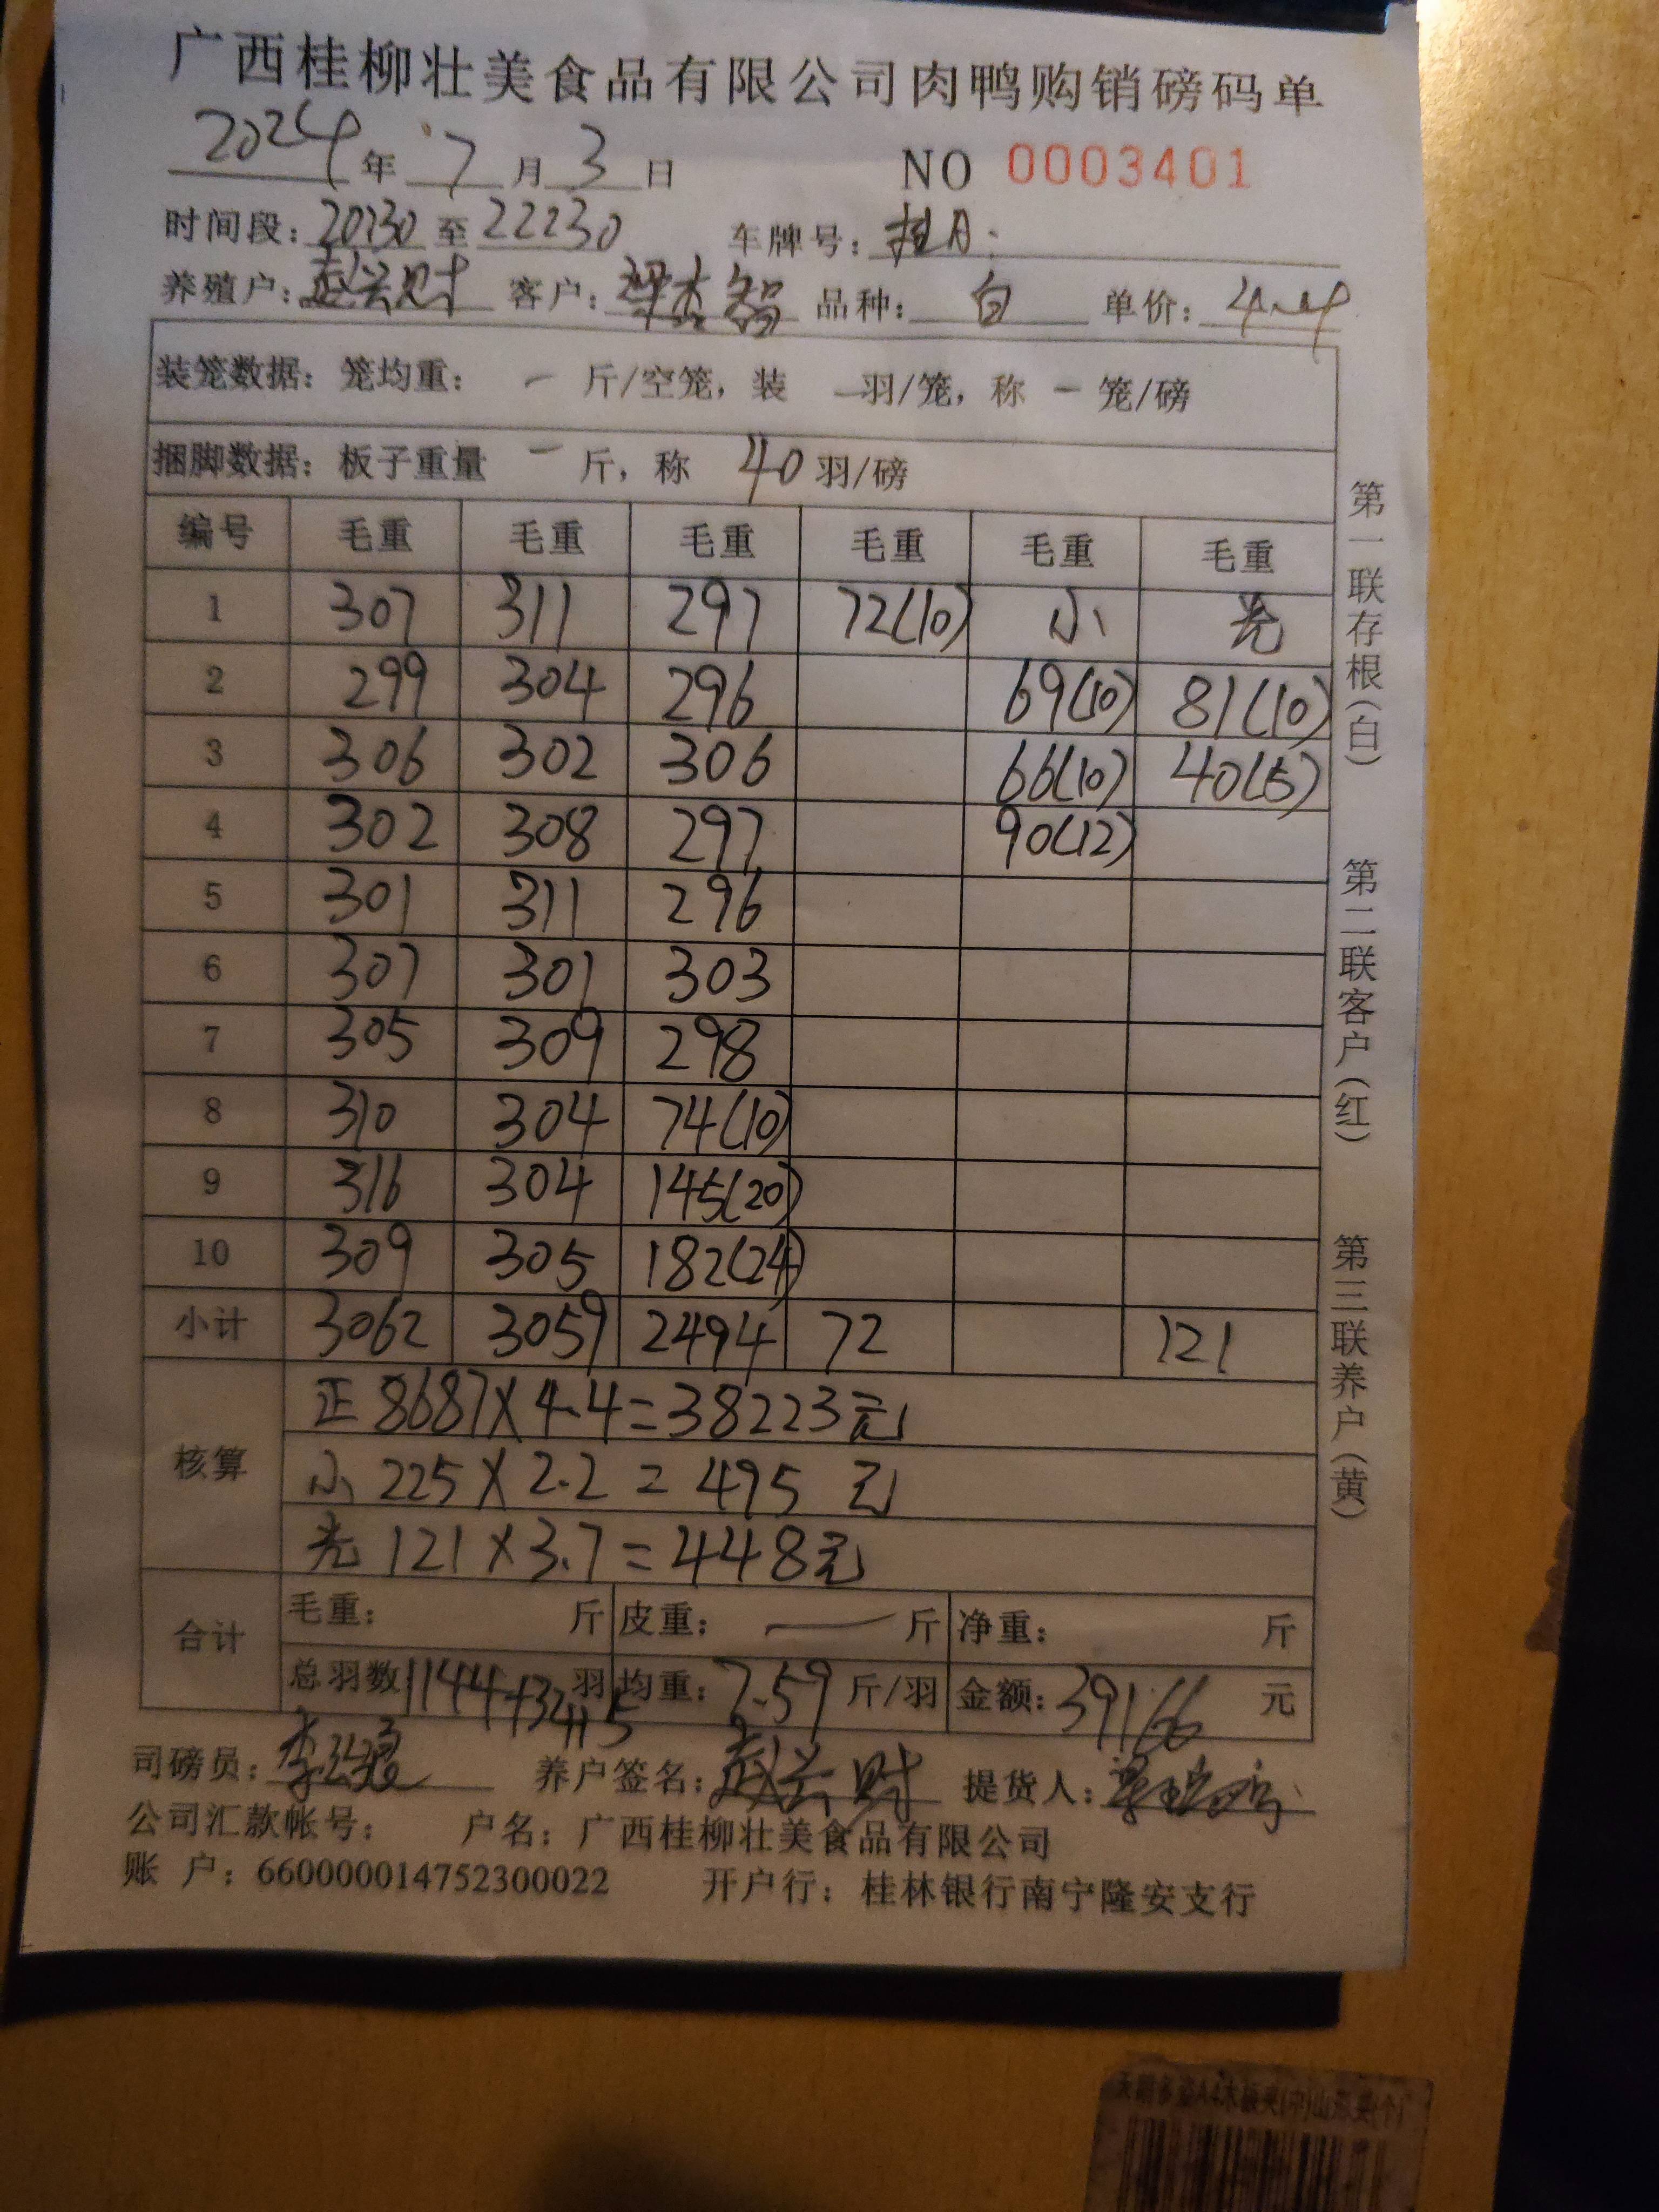 广西桂柳壮美食品有限公司肉鸭购销磅码单
2024年 7月 3日 NO 0003401
时间段：20:30 至 22:30 车牌号：桂A·
养殖户：赵兴财 客户： 品种：白 单价：4.4
装笼数据：笼均重： 一 斤/空笼，装 一羽/笼，称 一 笼/磅
捆脚数据：板子重量 一 斤，称 40 羽/磅
编号 毛重 毛重 毛重 毛重 毛重 毛重
1 307 311 297 72(10) 小 壳
2 299 304 296 69(10) 81(10)
3 306 302 306 66(10) 40(5)
4 302 308 297 90(12)
5 301 311 296
6 307 301 303
7 305 309 298
8 310 304 74(10)
9 316 304 145(20)
10 309 305 182(24)
小计 3062 3059 2494 72 121
核算
正 8687×4.4=38223元
小 225×2.2=495 元
壳 121×3.7=448元
合计
毛重： 斤 皮重： 一 斤 净重： 斤
总羽数：1144+32+15羽 均重：7.59 斤/羽 金额：39166 元
司磅员： 养户签名：赵兴财 提货人：
公司汇款帐号： 户名：广西桂柳壮美食品有限公司
账 户：660000014752300022 开户行：桂林银行南宁隆安支行
第一联存根(白)
第二联客户(红)
第三联养户(黄)